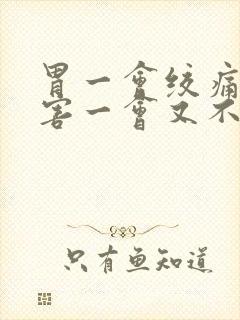 胃一會绞痛
害一會又不
只有鱼知道